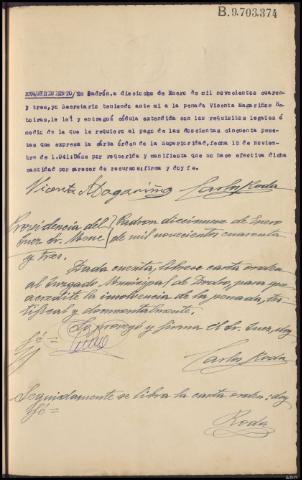 B.9.703.374
REQUERIMIENTO/En Padrón, a dieciocho de Enero de mil novecientos cuaren-
y tres, yo Secretario teniendo ante mi a la penada Vicenta Magariños
le leí y entregué cédula extendida con los requisitos legales
medio de la que le requiero al pago de las doscientas cincuenta pesetas
que expresa la carta órden de la Superioridad, fecha 10 de Noviem-
bre de 1.941. Dáse por requerida y manifiesta que no hace efectiva dicha
cantidad por carecer de recursos: firma y doy fe.
Vicenta Magariños Carlos Roda
Providencia del Padron diecinueve de Enero
Juez Sr. de mil novecientos cuarenta
y tres.
Dada cuenta, líbrese carta orden
al Juzgado Municipal de Dodro, para que
acredite la insolvencia de la penada, tes-
tifical y documentalmente.
Lo proveyó y firma el Sr. Juez, doy
fé =
Carlos Roda
Seguidamente se libra la carta orden: doy
fé =
Roda